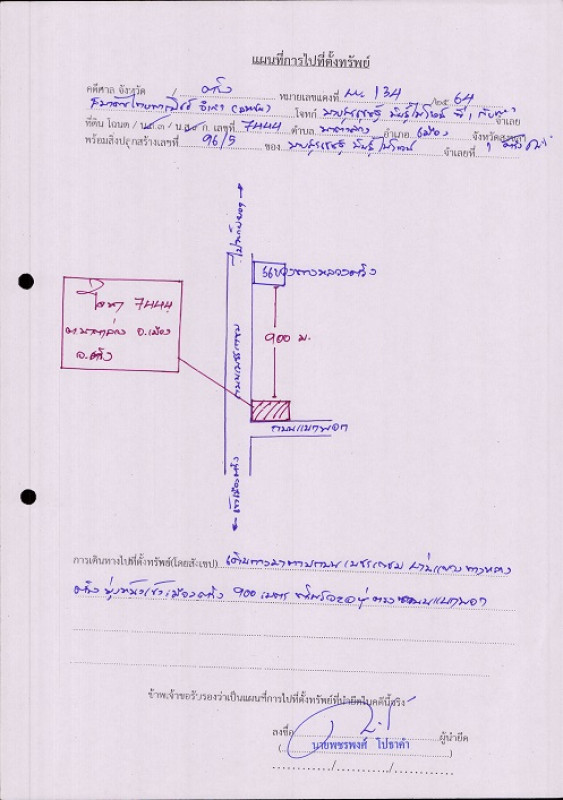 แผนที่การไปที่ตั้งทรัพย์
คดีศาล จังหวัด ตรัง หมายเลขแดงที่ ผบ 134 /25 64
ธนาคารไทยพาณิชย์ จำกัด (มหาชน) โจทก์ จำเลย
ที่ดิน โฉนด / น.ส.๓ / น.ส.๓ ก. เลขที่ 7444 ตำบล นาตาล่วง อำเภอ เมือง จังหวัด ตรัง
พร้อมสิ่งปลูกสร้างเลขที่ 96/5 ของ จำเลยที่ 1
แขวงทางหลวงตรัง
900 ม.
ถนนเพชรเกษม
โฉนด 7444
ต.นาตาล่วง อ.เมือง
จ.ตรัง
เข้าเมืองตรัง
การเดินทางไปที่ตั้งทรัพย์(โดยสังเขป) เดินทางมาตามถนนเพชรเกษม ผ่านแขวงทางหลวง
ตรัง มุ่งหน้าเข้าเมืองตรัง 900 เมตร ทรัพย์จะอยู่
ข้าพเจ้าขอรับรองว่าเป็นแผนที่การไปที่ตั้งทรัพย์ที่นำยึดในคดีนี้จริง
ลงชื่อ ผู้นำยึด
( นายพชรพงศ์ โปธาคำ )